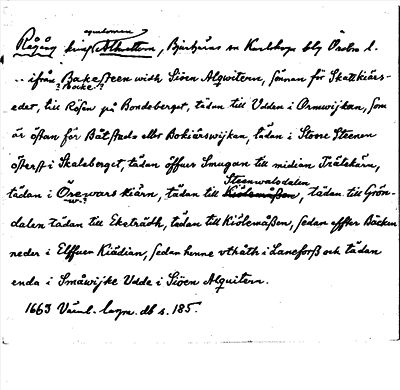 egendomen
Rågång kring Alkvettern, Bjurtjärns sn Karlskoga blg Örebro l.
.. ifrån Bakesteen widh Siöen Alqwitern, sönnan för Skattkiärs-
Bocke?
edet, till Rösen på Bondeberget, tädan till Udden i Ormwijkan, som
är östan för Båtstads eller Bokiärswijkan, täden i Stoore Steenen
österst i Skaleberget, tädan öffuer Smugan till midian Trätekärn,
Steenwalsdalen
tädan i Örewars kiärn, tädan till Kiölsmåßen, tädan till Grön-
-w-?
dalen tädan till Eketrädh, tädan till Kiölsmåßen, sedan effter Bäcken
neder i Elffuen Kiädian, sedan henne vthåth i Laneforß och tädan
enda i Småwijke Udde i Siöen Alquitern.
1663 Värml. lagm. db s. 185.